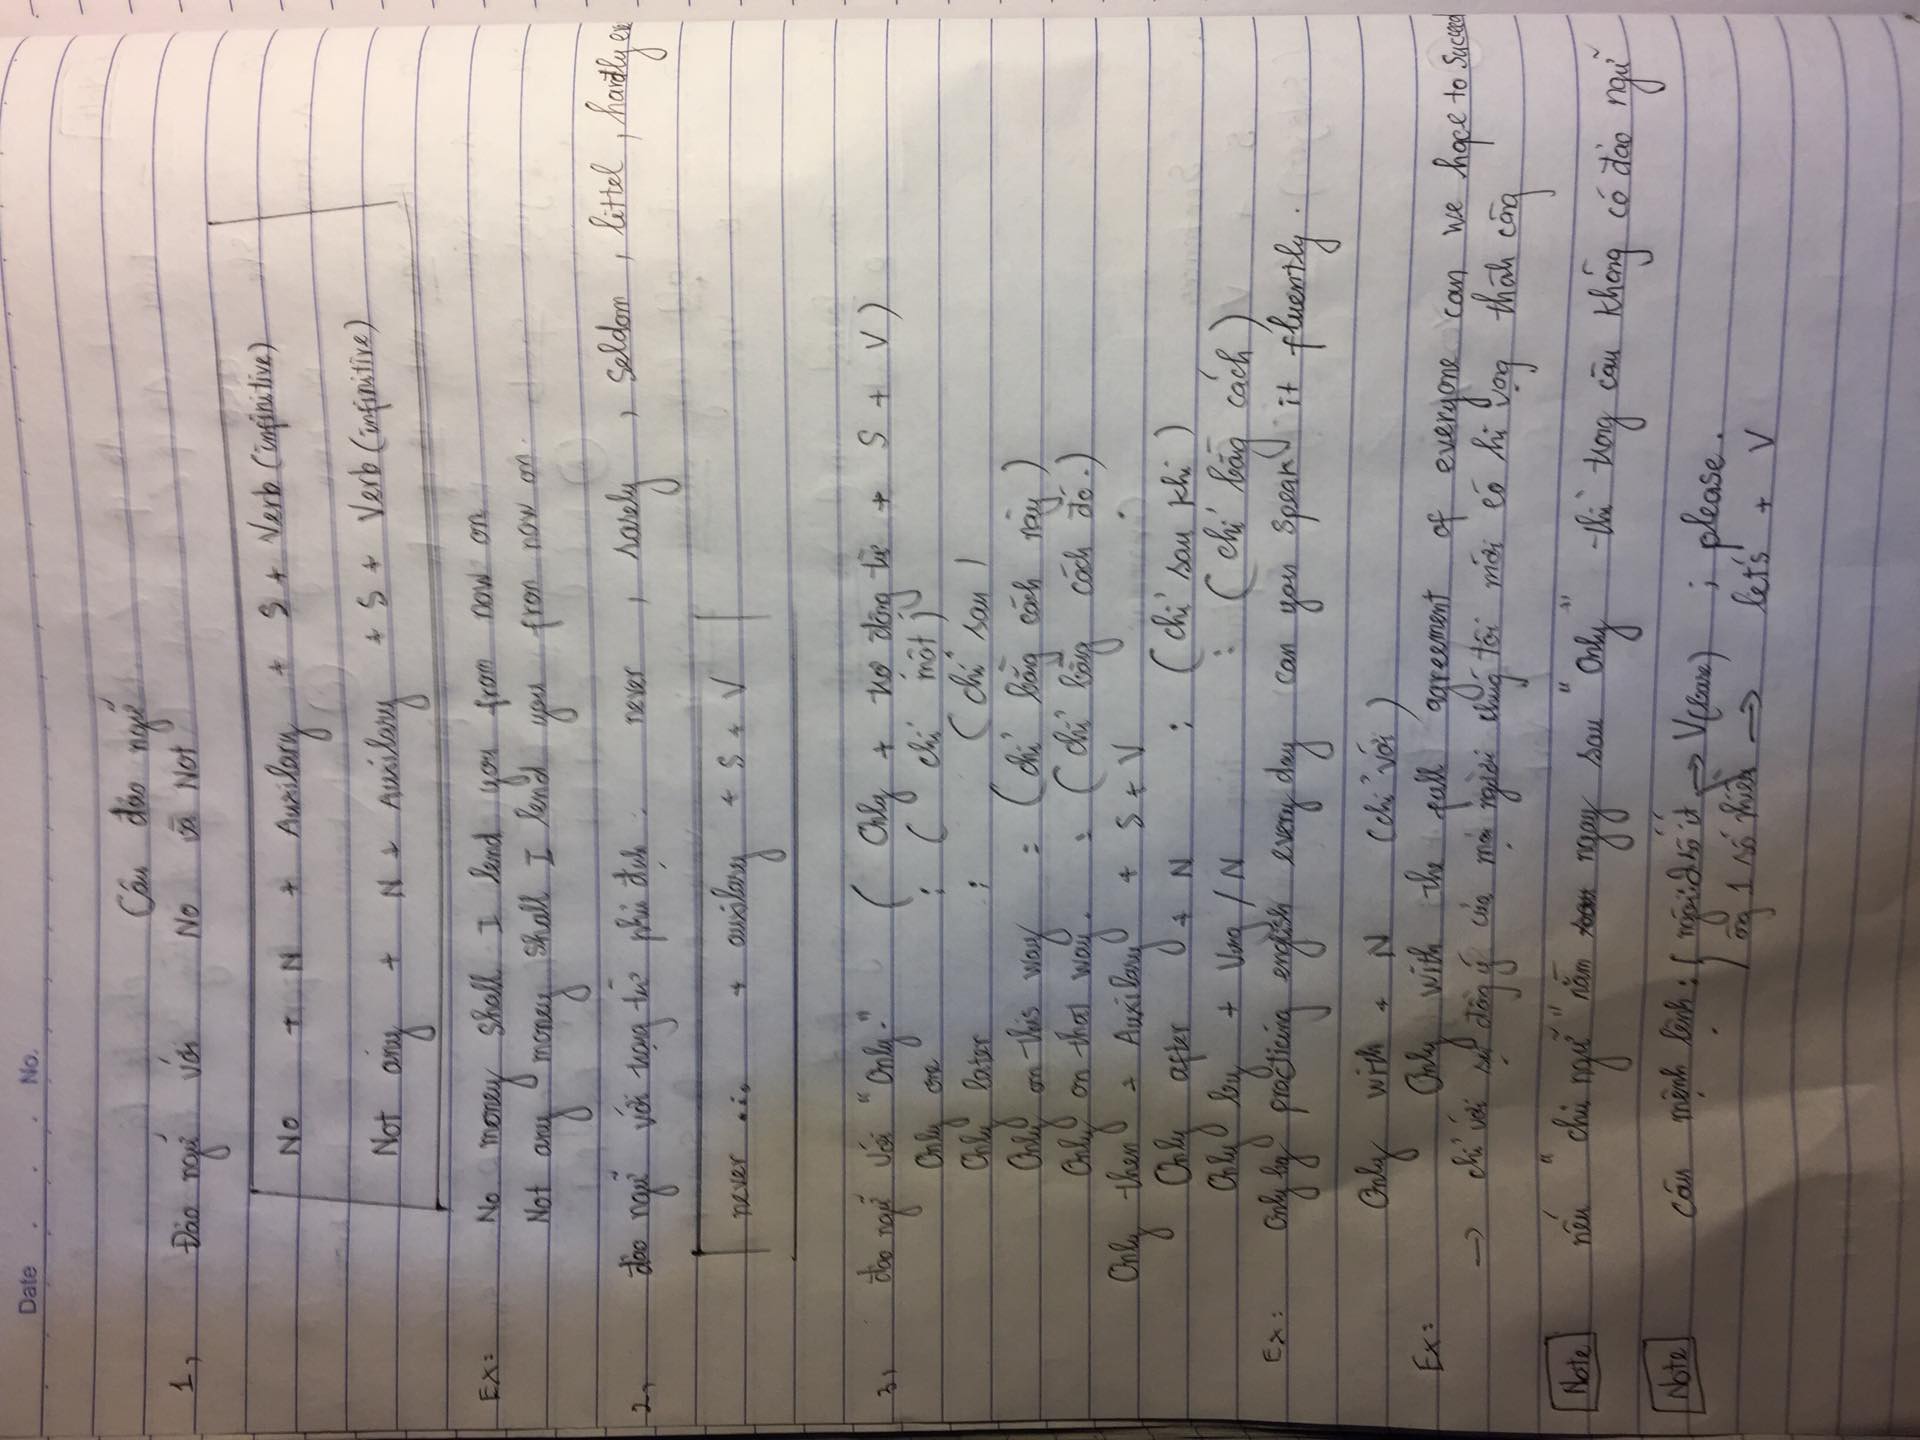 Date . . . No.
Câu đảo ngữ
1, Đảo ngữ với No và Not
No + N + Auxilary + S + Verb (infinitive)
Not any + N + Auxilary + S + Verb (infinitive)
Ex: No money shall I lend you from now on.
Not any money shall I lend you from now on.
2, đảo ngữ với trạng từ phủ định: never, rarely, seldom, littel, hardly ev
never ... + auxilary + S + V
3, đảo ngữ với "Only." (Only + trợ động từ + S + V)
Only one : (chỉ một)
Only later : (chỉ sau)
Only on this way : (chỉ bằng cách này)
Only on that way. : (chỉ bằng cách đó.)
Only then + Auxilary + S + V
Only after + N : (chỉ sau khi)
Only by + Ving/N : (chỉ bằng cách)
Ex: Only by practicing english every day can you speak it fluently.
Only with + N (chỉ với)
Ex: Only with the full agreement of everyone can we hope to Succeed
-> chỉ với sự đồng ý của mọi người chúng tôi mới có hi vọng thành công
Note nếu "chủ ngữ" nằm ngay sau "Only" thì trong câu không có đảo ngữ
Note câu mệnh lệnh: { ngôi t2 số ít => V(bare) ; please.
ng 1 số nhiều => let's + V